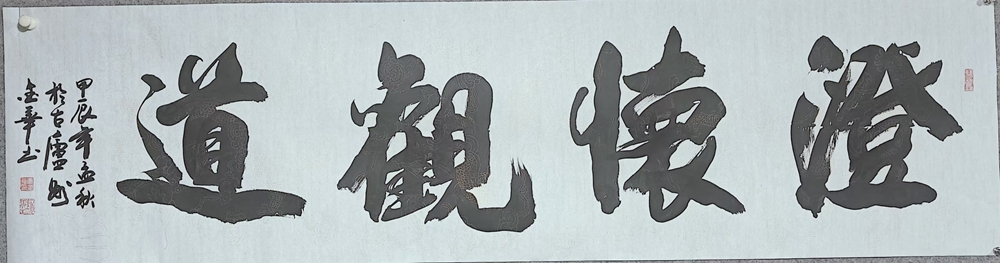 澄懷觀道
甲辰年孟秋
於古廬州
金華书